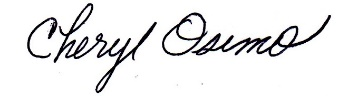 Cheryl Osimo